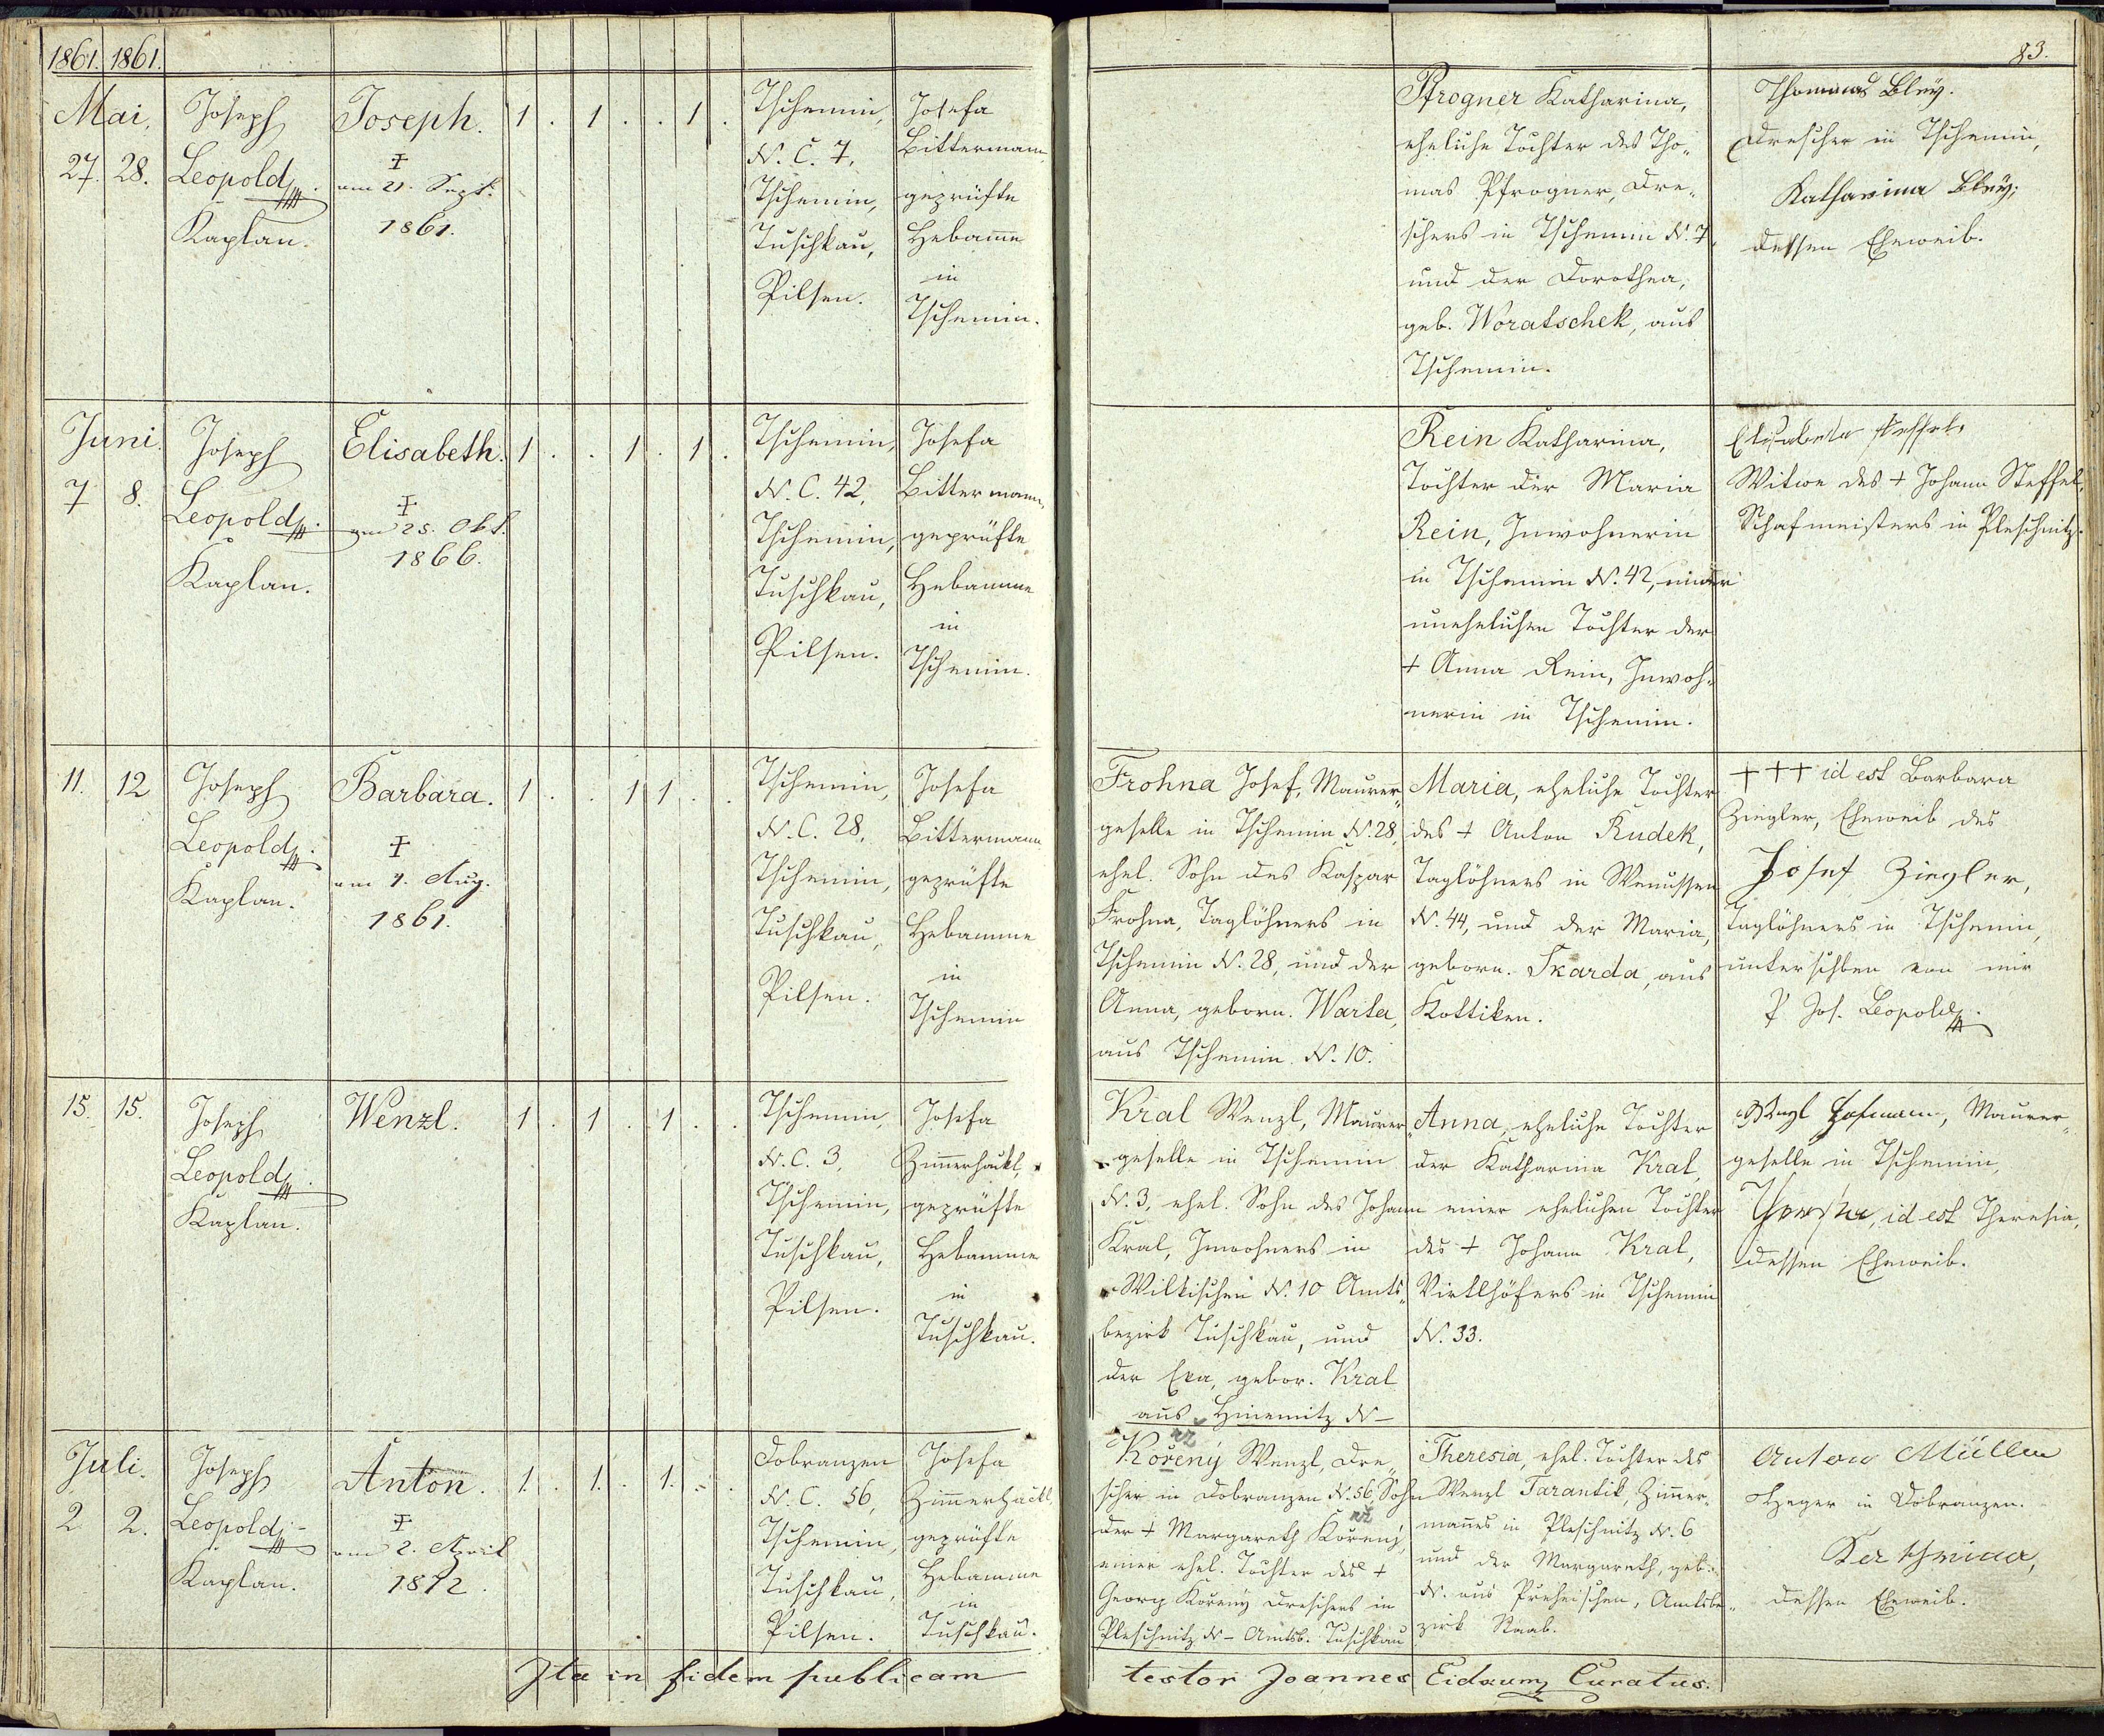 1861. 1861.
83.
Mai,
27. 28.
Joseph
Leopold
Kaplan.
Joseph.
‡
am 21. Sept.
1861.
1 . 1 . . 1 .
Tschemin,
N. C. 7,
Tschemin,
Tuschkau,
Pilsen.
Josefa
Bittermann,
geprüfte
Hebamme
in
Tschemin.
Pfrogner Katharina,
eheliche Tochter des Tho-
mas Pfrogner, Dre-
schers in Tschemin N. 7,
und der Dorothea,
geb. Woratschek, aus
Tschemin.
Thomas Bley.
Drescher in Tschemin,
Katharina Bley,
dessen Eheweib.
Juni.
7 8.
Joseph
Leopold
Kaplan.
Elisabeth.
‡
am 25. Okt.
1866.
1 . . 1 . 1 .
Tschemin,
N. C. 42,
Tschemin,
Tuschkau,
Pilsen.
Josefa
Bittermann,
geprüfte
Hebamme
in
Tschemin.
Rein Katharina,
Tochter der Maria
Rein, Inwohnerin
in Tschemin N. 42, einer
unehelichen Tochter der
+ Anna Rein, Inwoh-
nerin in Tschemin.
Elisabeta Steffel,
Witwe des + Johann Steffel,
Schafmeisters in Pleschnitz.
11. 12
Joseph
Leopold
Kaplan.
Barbara.
‡
am 4. Aug.
1861.
1 . . 1 1 . .
Tschemin,
N. C. 28,
Tschemin,
Tuschkau,
Pilsen.
Josefa
Bittermann
geprüfte
Hebamme
in
Tschemin
Frohna Josef, Maurer-
geselle in Tschemin N. 28,
ehel. Sohn des Kaspar
Frohna, Taglöhners in
Tschemin N. 28, und der
Anna, geborn. Warta,
aus Tschemin N. 10.
Maria, eheliche Tochter
des + Anton Rudek,
Taglöhners in Wenussen
N. 44, und der Maria,
geborn. Skarda, aus
Kottiken.
+++ id est Barbara
Ziegler, Eheweib des
Josef Ziegler,
Taglöhners in Tschemin,
unterschben von mir
P. Jos. Leopold
15. 15.
Joseph
Leopold
Kaplan.
Wenzl.
1 . 1 . 1 . .
Tschemin,
N. C. 3,
Tschemin,
Tuschkau,
Pilsen.
Josefa
Zimmerhackl,
geprüfte
Hebamme
in
Tuschkau.
Kral Wenzl, Maurer-
geselle in Tschemin
N. 3, ehel. Sohn des Johann
Kral, Inwohners in
Wilkischen N. 10 Amts-
bezirk Tuschkau, und
der Eva, gebor. Kral
aus Hniemitz N –
Anna, eheliche Tochter
der Katharina Kral,
einer ehelichen Tochter
des + Johann Kral,
Virtlhöfers in Tschemin
N. 33.
Wenzl Hofmann, Maurer-
geselle in Tschemin,
id est Theresia,
dessen Eheweib.
Juli.
2 2.
Joseph
Leopold
Kaplan.
Anton.
‡
am 2. April
1872.
1. . 1. . 1. . .
Dobranzen
N. C. 56,
Tschemin,
Tuschkau,
Pilsen.
Josefa
Zimmerhackl,
geprüfte
Hebamme
in
Tuschkau.
rž
Kořeny Wenzl, Dre-
scher in Dobranzen N. 56 Sohn
rž
der + Margareth Kořeny,
einer ehel. Tochter des +
Georg Kořeny Dreschers in
Pleschnitz N – Amtsb. Tuschkau
Theresia, ehel. Tochter des
Wenzl Tarantik, Zimmer-
mannes in Pleschnitz N. 6
und der Margareth, geb.
N. aus Preheischen, Amtsbe-
zirk Staab.
Anton Müller
Heger in Dobranzen.
dessen Eheweib.
Ita in fidem publicam testor Joannes Eidaum Curatus.